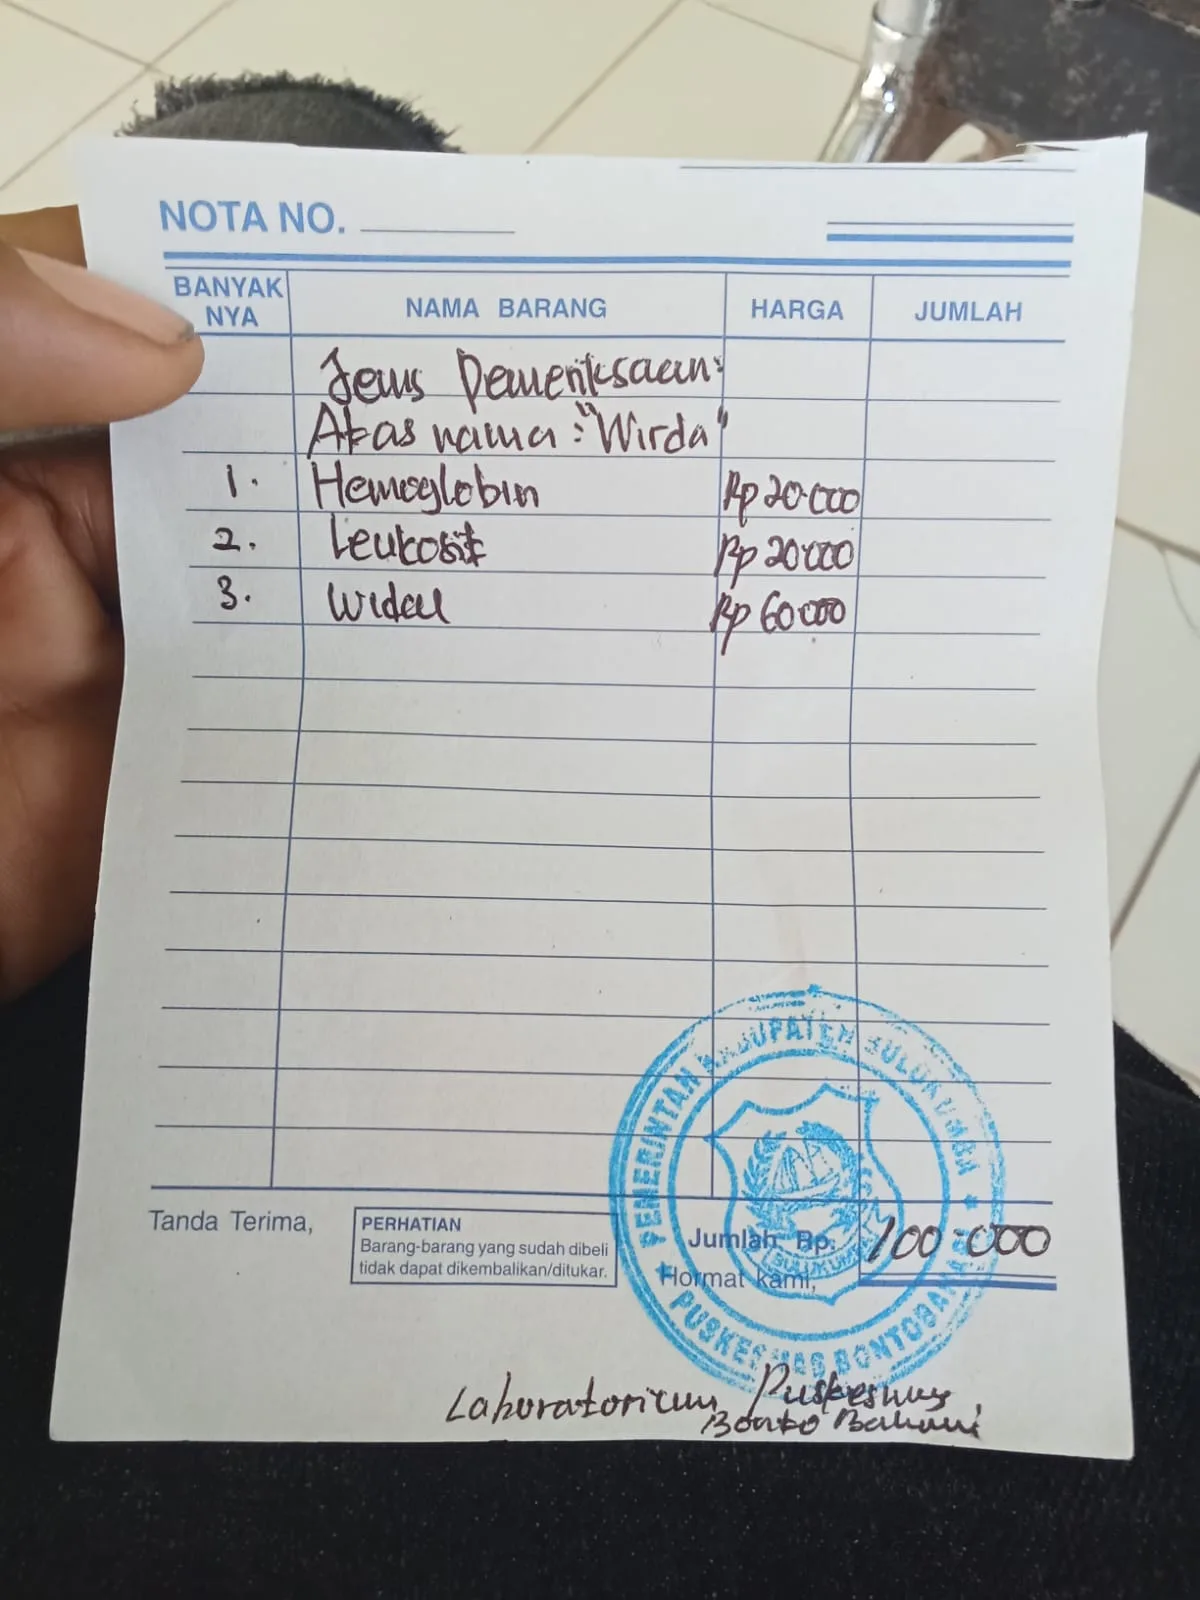 NOTA NO.
BANYAK NYA NAMA BARANG HARGA JUMLAH
Jenis Pemeriksaan:
Atas nama : "Wirda"
1. Hemoglobin Rp 20.000
2. Leukosit Rp 20.000
3. Widal Rp 60.000
PEMERINTAH KABUPATEN BULUKUMBA
PUSKESMAS BONTOBAHARI
Tanda Terima,
PERHATIAN
Barang-barang yang sudah dibeli
tidak dapat dikembalikan/ditukar.
Jumlah Rp. 100.000
Hormat kami,
Laboratorium Puskesmas
Bonto Bahari